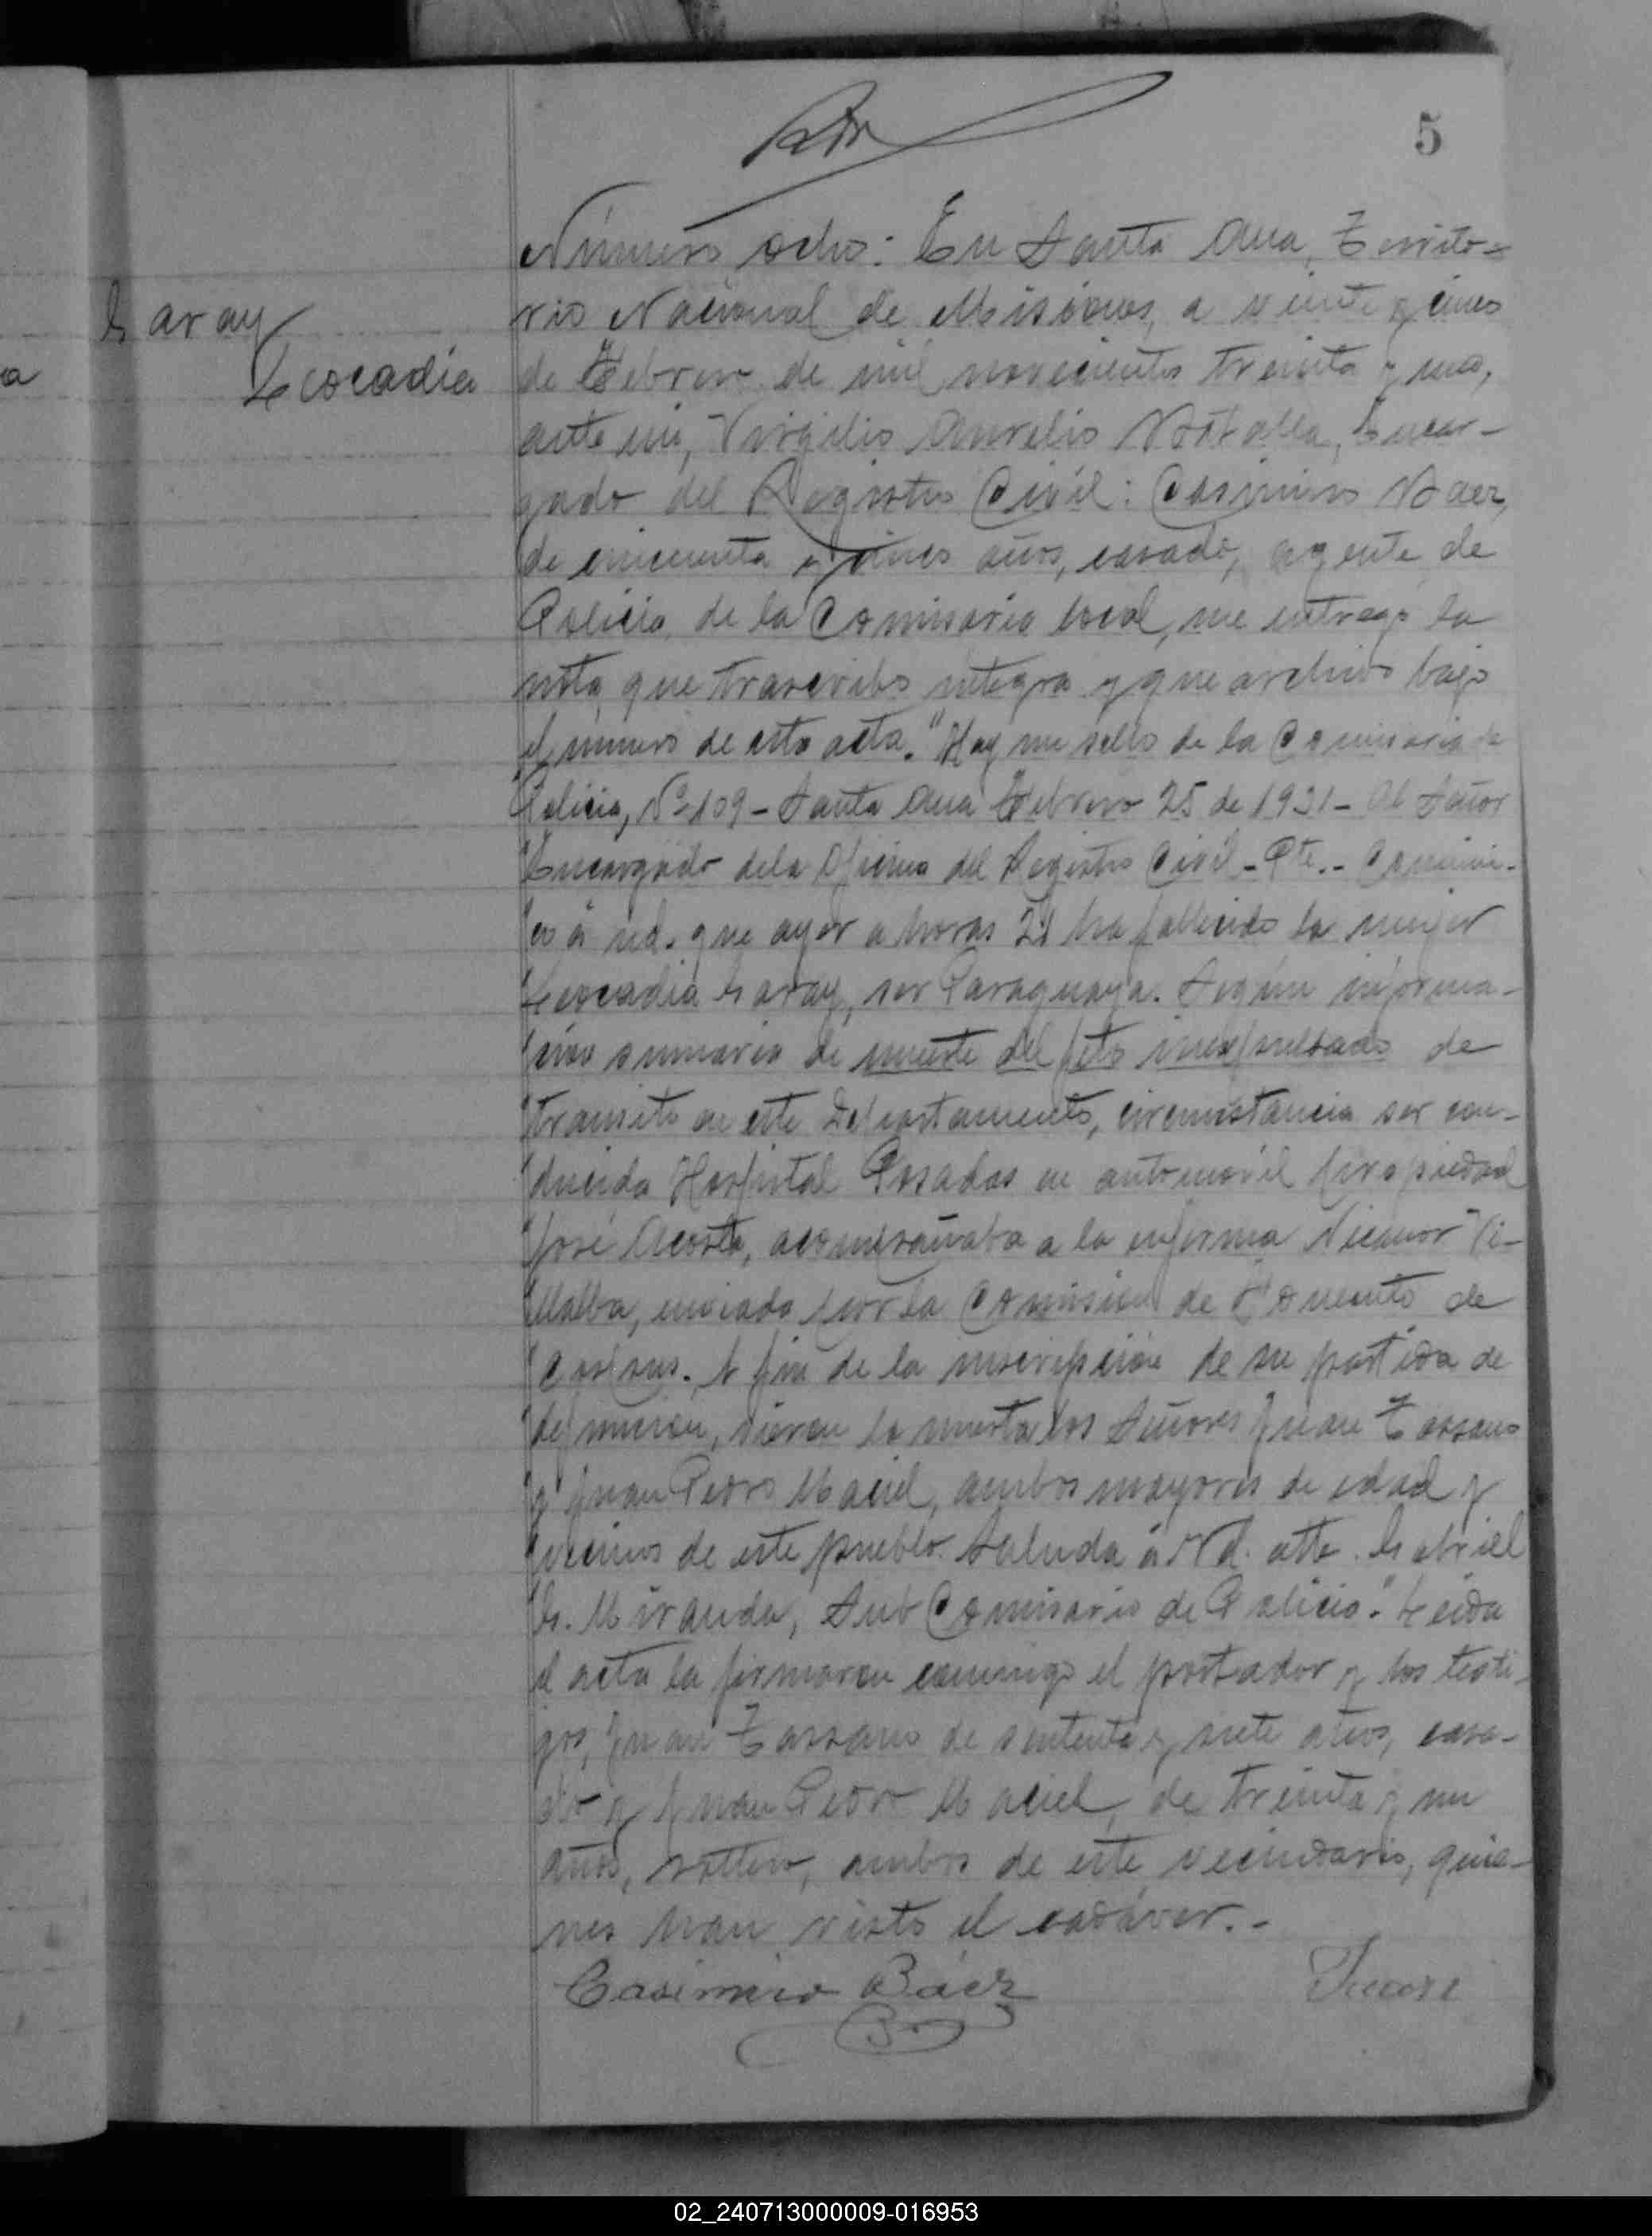 5
Número ocho: En Santa Ana, Territo-
rio Nacional de Misiones, a veinte y cinco
Garay
Leocadia
a
de Febrero de mil novecientos treinta y uno,
ante mi, Virgilio Aurelio Encar-
gado del Registro Civil: Casimiro Baez,
de cincuenta y cinco años, casado, agente de
Policia de la Comisaria local, me entregó la
nota que trascribo integra y que archivo bajo
el número de esta acta. "Hay un sello de la Comisaria de
Policia, Nº 109 - Santa Ana Febrero 25 de 1931 - Al Señor
"Encargado de la Oficina del Registro Civil - Pte. - Comuni-
"co á ud. que ayer a horas 21 ha fallecido la mujer
"Leocadia Garay, ser Paraguaya. Según informa-
"ción sumaria de muerte del feto inexpulsado de
"transito en este Departamento, circunstancia ser con-
"ducida Hospital Posadas en automóvil propiedad
"José Acosta, acompañaba a la enferma Nicanor Vi-
"llalba, enviado por la Comisión de Fomento de
"Corpus. A fin de la inscripción de su partida de
"defunción, vieron la muerta los Señores Juan
"y Juan Pedro Maciel, ambos mayores de edad y
"vecinos de este pueblo. Saluda á Ud. atte. Gabriel
"G. Miranda, Sub Comisario de Policia." Leida
el acta la firmaron conmigo el portador y los testi-
gos, Juan de y siete años, casa-
do y Juan Pedro Maciel, de treinta y un
años, soltero, ambos de este vecindario, quie-
nes han visto el cadáver. -
Casimiro Báez
02_240713000009-016953